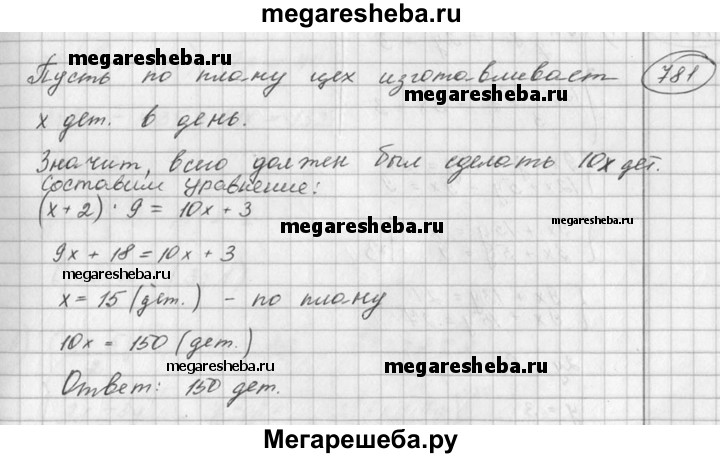 megaresheba.ru
megaresheba.ru
Пусть по плану цех изготавливает
781
megaresheba.ru
х дет. в день.
Значит, всего должен был сделать 10х дет.
Составим уравнение:
(х+2) · 9 = 10х + 3
megaresheba.ru
megaresheba.ru
9х + 18 = 10х + 3
megaresheba.ru
х = 15 (дет.) - по плану
10х = 150 (дет.)
megaresheba.ru
megaresheba.ru
Ответ: 150 дет.
Мегарешеба.ру